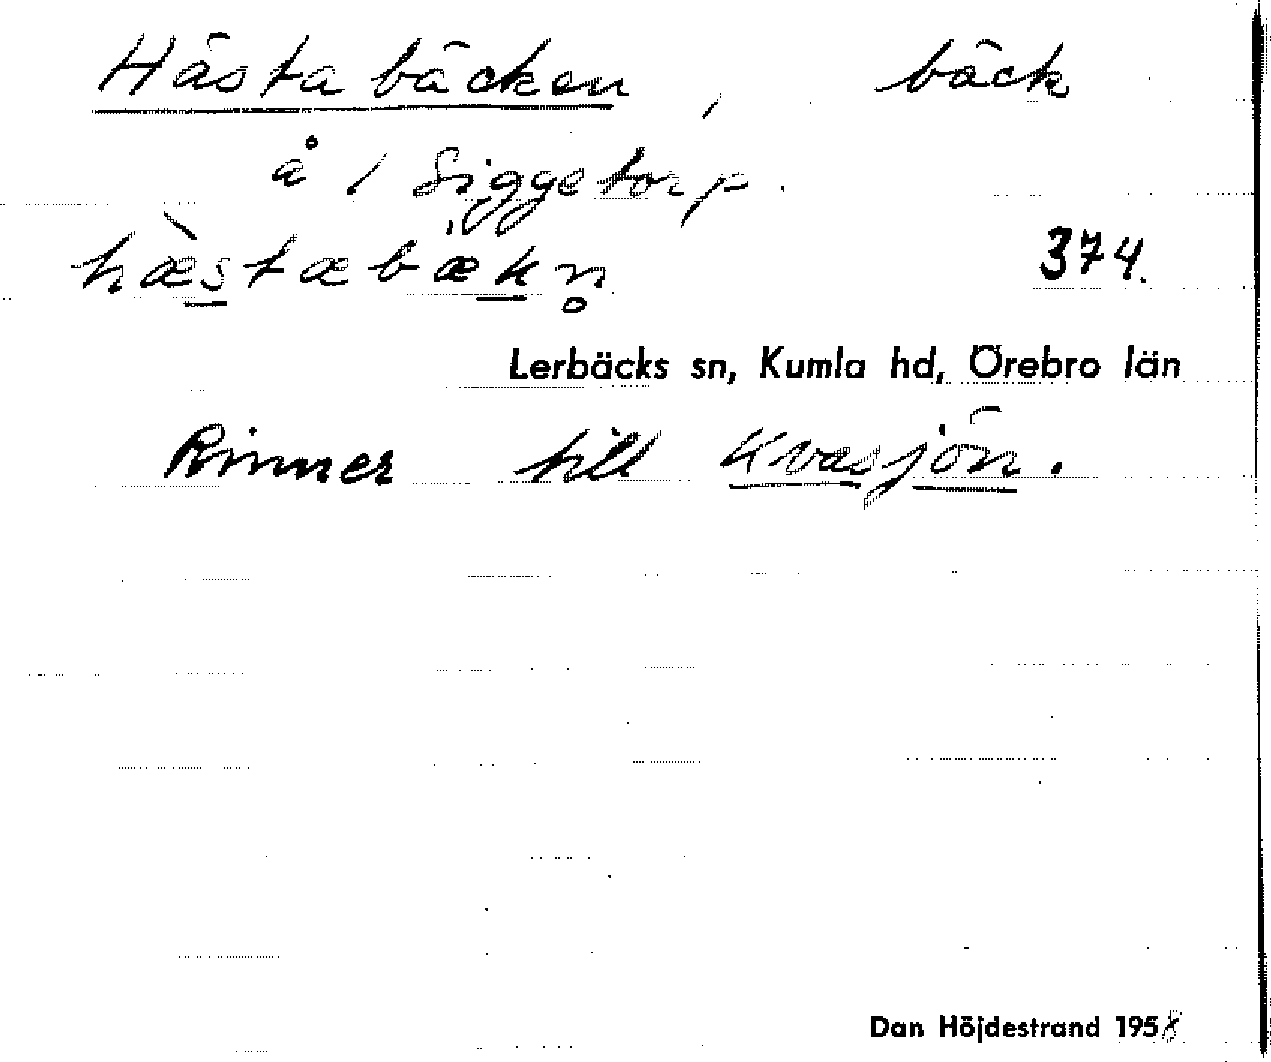 Hästabäcken, bäck
å 1 Siggetorp.
hæ̀stæbækn̥ 374.
Lerbäcks sn, Kumla hd, Örebro län
Rinner till Kvasjön.
Dan Höjdestrand 1958